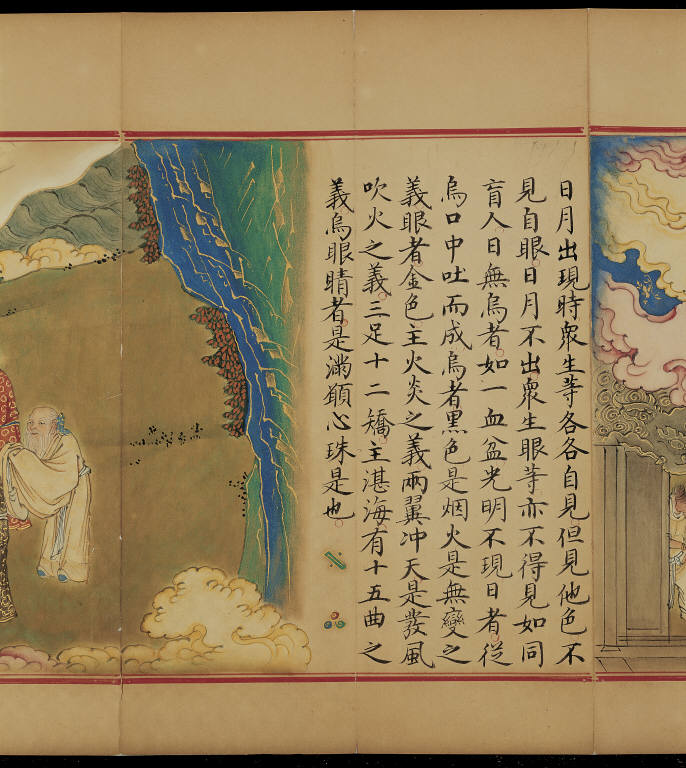 日月出現時眾生等各各自見但見他色不
見自眼日月不出眾生眼等亦不得見如同
盲人日無烏者如一血盆光明不現日者從
烏口中吐而成烏者黑色是烟火是無變之
義眼者金色主火炎之義兩翼冲天是發風
吹火之義三足十二矯主湛海有十五曲之
義烏眼睛者是滿願心珠是也